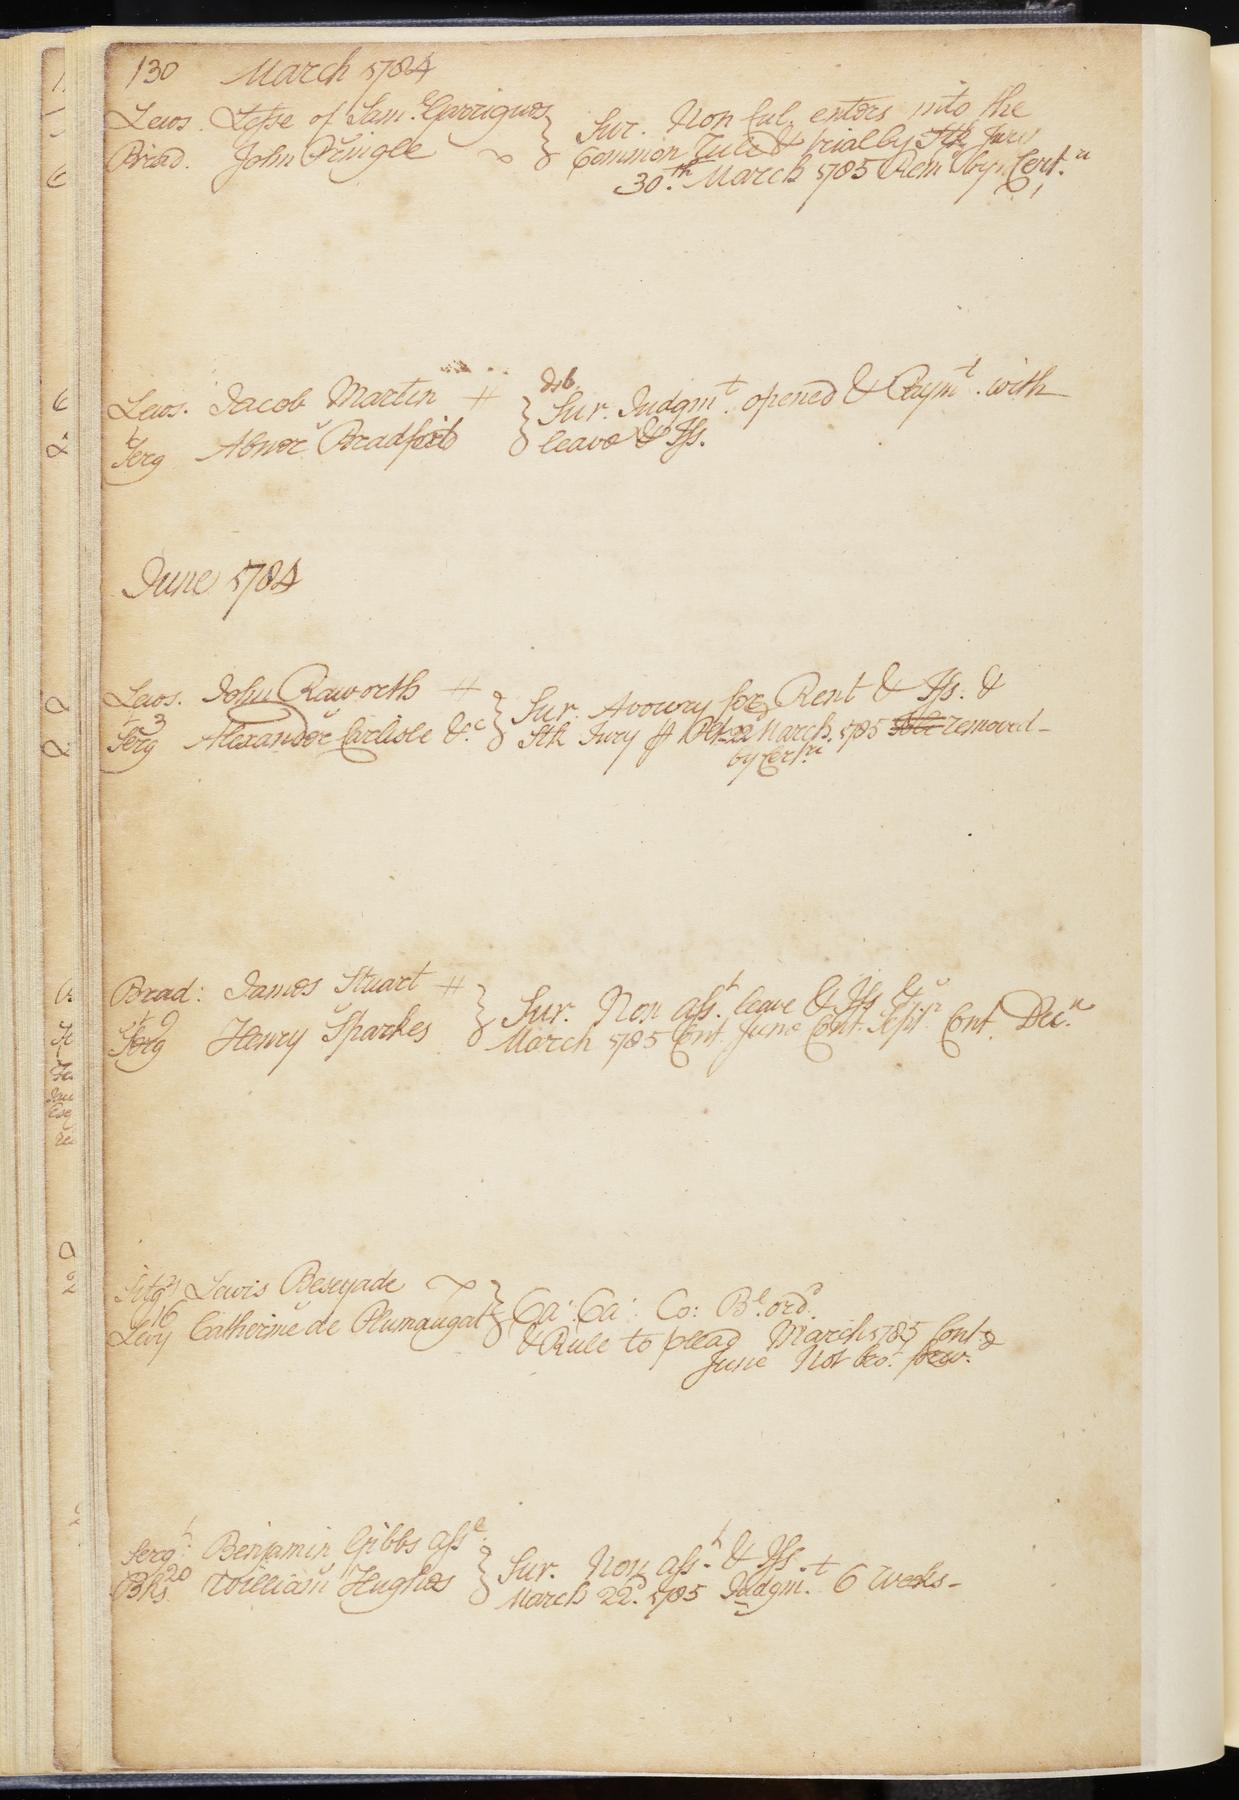 130 March 1784
Lews. Lesse of Sam. Garrigues
Brad. John Pringle
Sur. Non Cul. enters into the
Common Rule & trial by Stk Jury
30th March 1785 Rem by Cert.
Lews. Jacob Martin
Serg Abner Bradford
dsb
Sur. Judgmt. opened & Paymt. with
leave & Iss.
June 1784
Lews. John Raworth
Serg 3 Alexander Carlisle &c.
Sur. Avowry for Rent & Iss. &
Stk Jury 22d March. 1785 removed
by Cert
Brad: James Stuart
Serg 9 Henry Sparkes
Sur. Non asst. leave & Iss &
March 1785 Cont. June Cont. Sept. Cont. Dec.
Lewis Beseyade
16
Levy Catherine de Plumaugat
Ca: Ca: Co: Bl. ord
& Rule to plead March 1785 Cont.
June Not bro. forw.
Sergt: Benjamin Gibbs Asse.
20
William Hughes
Sur. Non asst. & Iss.
March 22d. 1785 Judgmt. 6 weeks